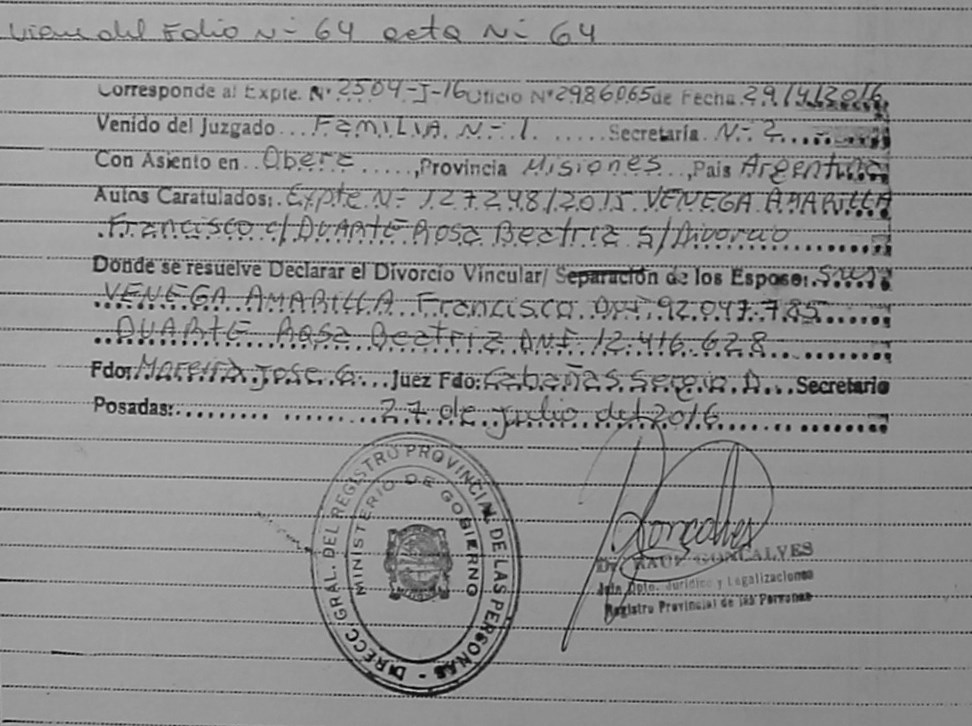 Viene del Folio N- 64 acta N- 64
Corresponde al Expte. N° 2504-I-16 Oficio N° 2986065 de Fecha 29/4/2016
Venido del Juzgado... FAMILIA N-1. .....Secretaría N-2
Con Asiento en Obera ....., Provincia Misiones .., Pais Argentina
Autos Caratulados: Expte N- 127248/2015 VENEGA AMARILLA
Francisco c/ DUARTE Rosa Beatriz s/Divorcio
Donde se resuelve Declarar el Divorcio Vincular/ Separación de los Esposos:
VENEGA AMARILLA Francisco DNI 92.047.785
DUARTE Rosa Beatriz DNI 12.416.628
Fdo: Moreira Jose G... Juez Fdo: Cabañas Sergio D... Secretario
Posadas:......... 27 de Julio del 2016
DIRECC. GRAL. DEL REGISTRO PROVINCIAL DE LAS PERSONAS -
MINISTERIO DE GOBIERNO
Goncalves
Dr. RAUL GONCALVES
Jefe Dpto. Jurídico y Legalizaciones
Registro Provincial de las Personas